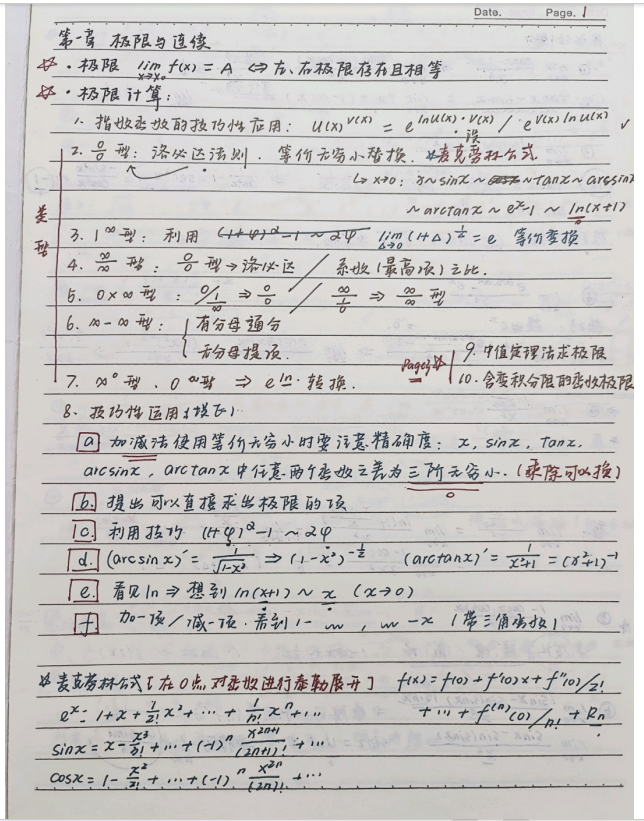 Date. Page. 1
第一章 极限与连续
☆·极限 lim x→x₀ f(x) = A ⇔ 左、右极限存在且相等
☆·极限计算:
1. 指数函数的技巧性应用: u(x)^v(x) = e^lnu(x)·v(x) / e^v(x)lnu(x) ✓
2. 0/0 型: 洛必达法则. 等价无穷小替换. *麦克劳林公式
↳ x→0: x~sinx~tanx~arcsinx
~arctanx~e^x-1~ln(x+1)
类型
3. 1^∞型: 利用 (1+φ)^α-1~αφ lim Δ→0 (1+Δ)^1/Δ = e 等价变换
4. ∞/∞ 型: 0/0 型→洛必达 / 系数(最高项)之比.
5. 0×∞型: 0/(1/∞) ⇒ 0/0 / ∞/(1/0) ⇒ ∞/∞ 型
6. ∞-∞型: { 有分母通分
无分母提项.
7. ∞⁰型. 0^∞型 ⇒ e^ln. 转换.
Page3☆ 9. 中值定理法求极限
10. 含变积分限的函数极限
8. 技巧性运用
a 加减法使用等价无穷小时要注意精确度: x, sinx, tanx,
arcsinx, arctanx中任意两个函数之差为三阶无穷小.(乘除可以换)
b. 提出可以直接求出极限的项
c. 利用技巧 (1+φ)^α-1~αφ
d. (arcsinx)′= 1/√(1-x²) ⇒ (1-x²)^-1/2 (arctanx)′= 1/(x²+1) = (x²+1)^-1
e. 看见ln ⇒ 想到 ln(x+1)~x (x→0)
f 加一项/减一项. 看到1- ﹏, ﹏-x (带三角函数)
*麦克劳林公式[在0点对函数进行泰勒展开] f(x)= f(0)+f′(0)x+f″(0)/2!
+…+f^(n)(0)/n!+Rn
e^x= 1+x+1/2! x²+…+1/n! x^n+…
sinx= x-x³/3!+…+(-1)^n x^2n+1/(2n+1)!+…
cosx= 1-x²/2!+…+(-1)^n x^2n/(2n)!+…